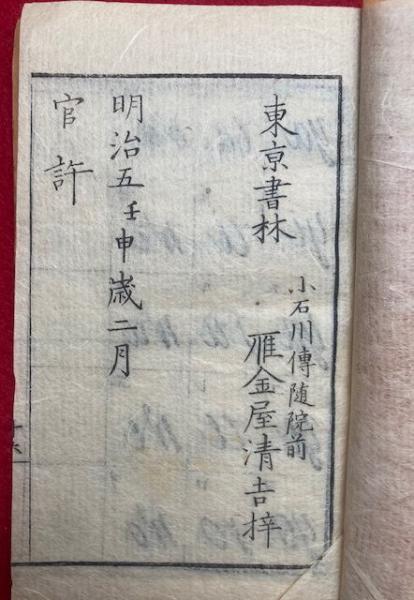 東京書林
小石川傳随院前
雁金屋清吉梓
明治五壬申歳二月
官許